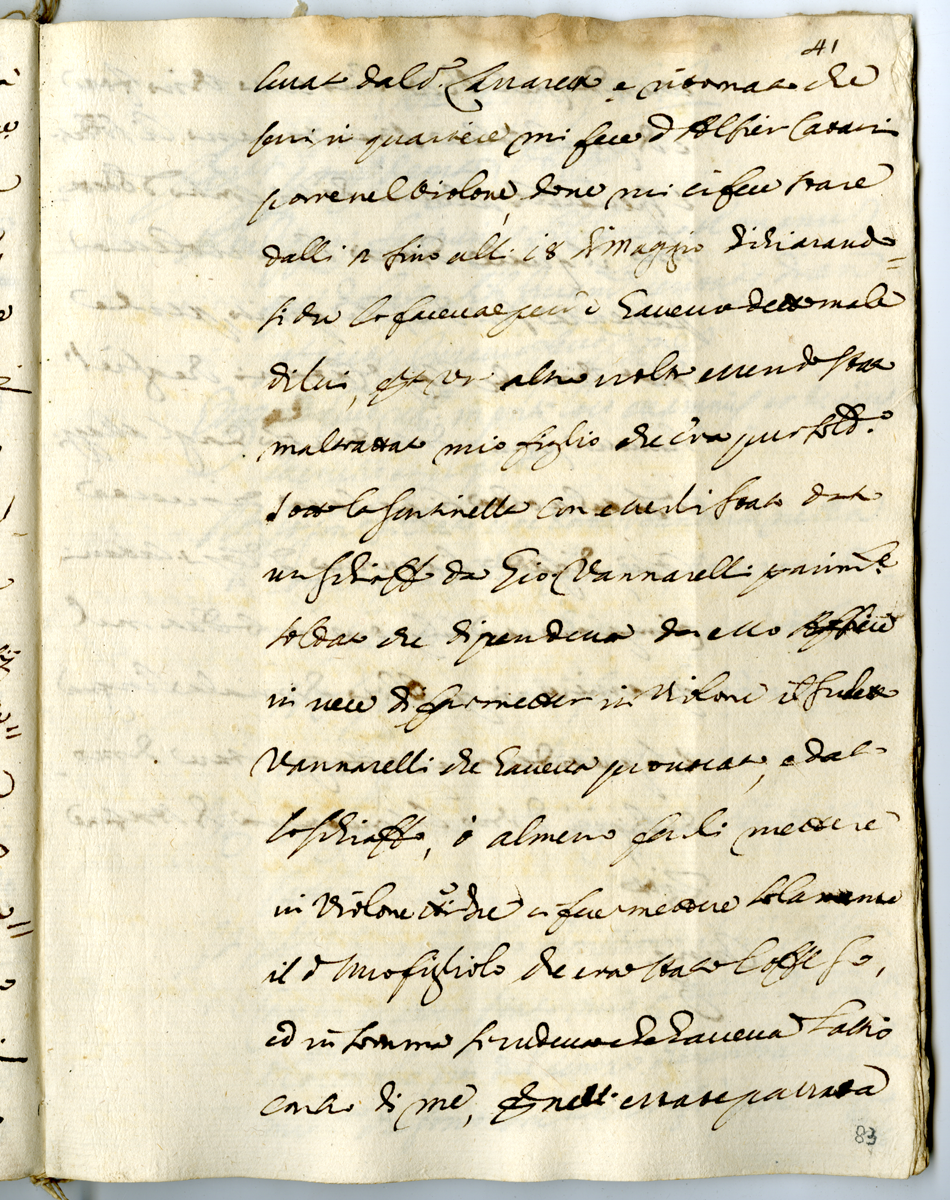 41
leuat dal d.º Lauaren e ritornato che
fui in quartiere mi fece d Alfier Cavari
porre nel violone, doue mi ci fece stare
dalli 2 fino alli 18 di Maggio dichiarando=
si che lo faceua perche haueua detto male
di lui, et un altra uolta essendo stato
maltrattato mio figlio che era pur sold.º
sotto la sentinella con esserli stato dato
un schiaffo da Gio: Vannarelli parim.te
soldato che dipendeua da esso
in uece di far metter in violone il sud.tto
Vannarelli che haueua prouocato, e dato
lo schiaffo, ò almeno farli mettere
in violone che ci fece mettere solamente
il d mio figliolo che era stato l'offeso,
ed in somma si uedeua che haueua l'astio
contro di me, e nell estate passata
83